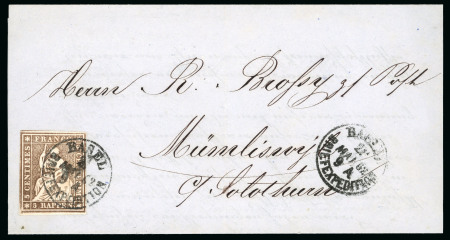 Herrn R. Brosy z/ Post
Mümliswyl
c/ Solothurn
FRANCO
5 CENTIMES
5 RAPPEN
BASEL
BASEL
MAI
BRIEFEXPEDITION